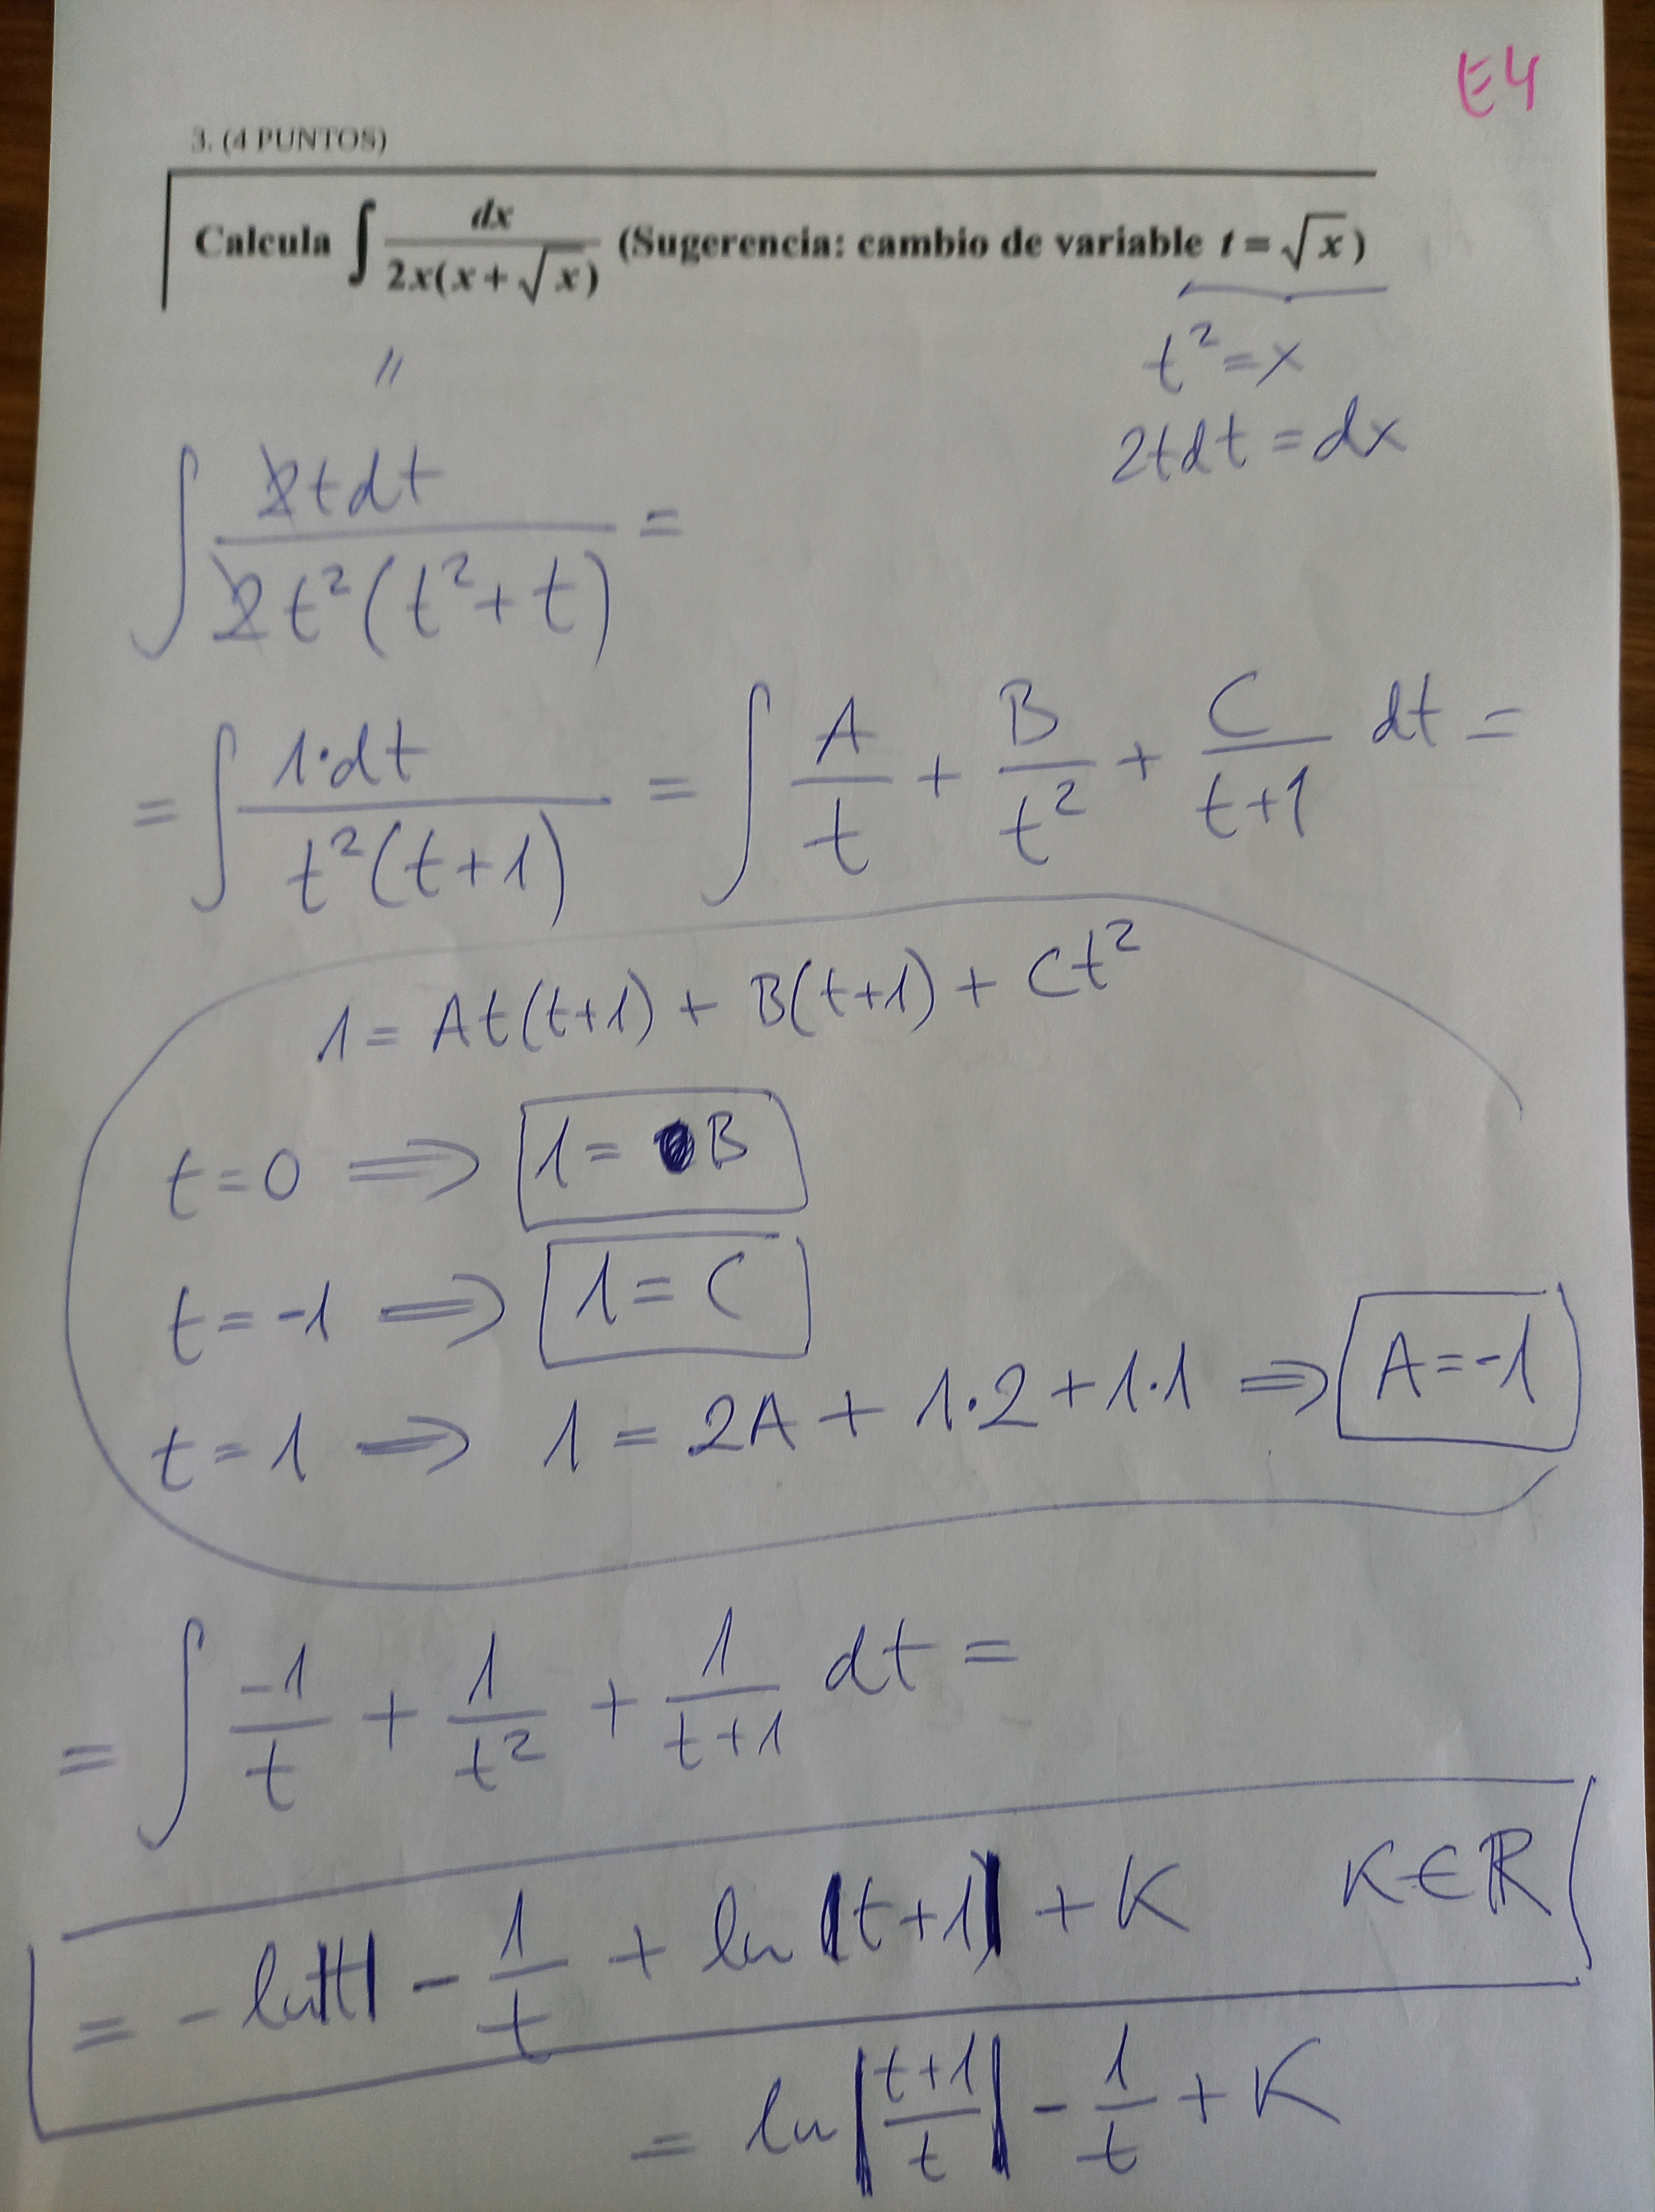 E4
3. (4 PUNTOS)
Calcula ∫ dx / 2x(x+√x) (Sugerencia: cambio de variable t = √x)
t² = x
2tdt = dx
"
∫ 2tdt / 2t²(t²+t) =
= ∫ 1·dt / t²(t+1) = ∫ A/t + B/t² + C/t+1 dt =
1 = At(t+1) + B(t+1) + Ct²
t=0 ⟹ 1 = B
t=-1 ⟹ 1 = C
t=1 ⟹ 1 = 2A + 1·2 + 1·1 ⟹ A=-1
= ∫ -1/t + 1/t² + 1/t+1 dt =
= - ln|t| - 1/t + ln|t+1| + K K∈ℝ
= ln|t+1/t| - 1/t + K